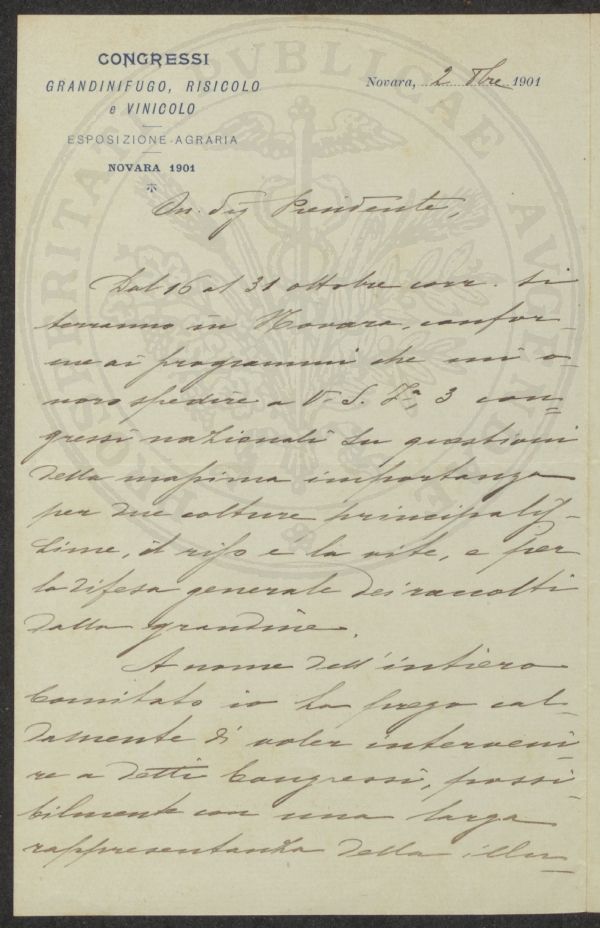 CONGRESSI
GRANDINIFUGO, RISICOLO
e VINICOLO
ESPOSIZIONE AGRARIA
NOVARA 1901
Novara, 2 8bre 1901
On. Sig Presidente,
Dal 16 al 31 ottobre corr. si
terranno in Novara, confor-
me ai programmi che mi o-
noro spedire a V. S. Ill.ª, 3 con-
gressi nazionali su questioni
della massima importanza
per due colture principalis-
sime, il riso e la vite, e per
la difesa generale dei raccolti
dalla grandine.
A nome dell'intiero
Comitato io La prego cal-
damente di voler interveni-
re a detti Congressi, possi-
bilmente con una larga
rappresentanza della illu-